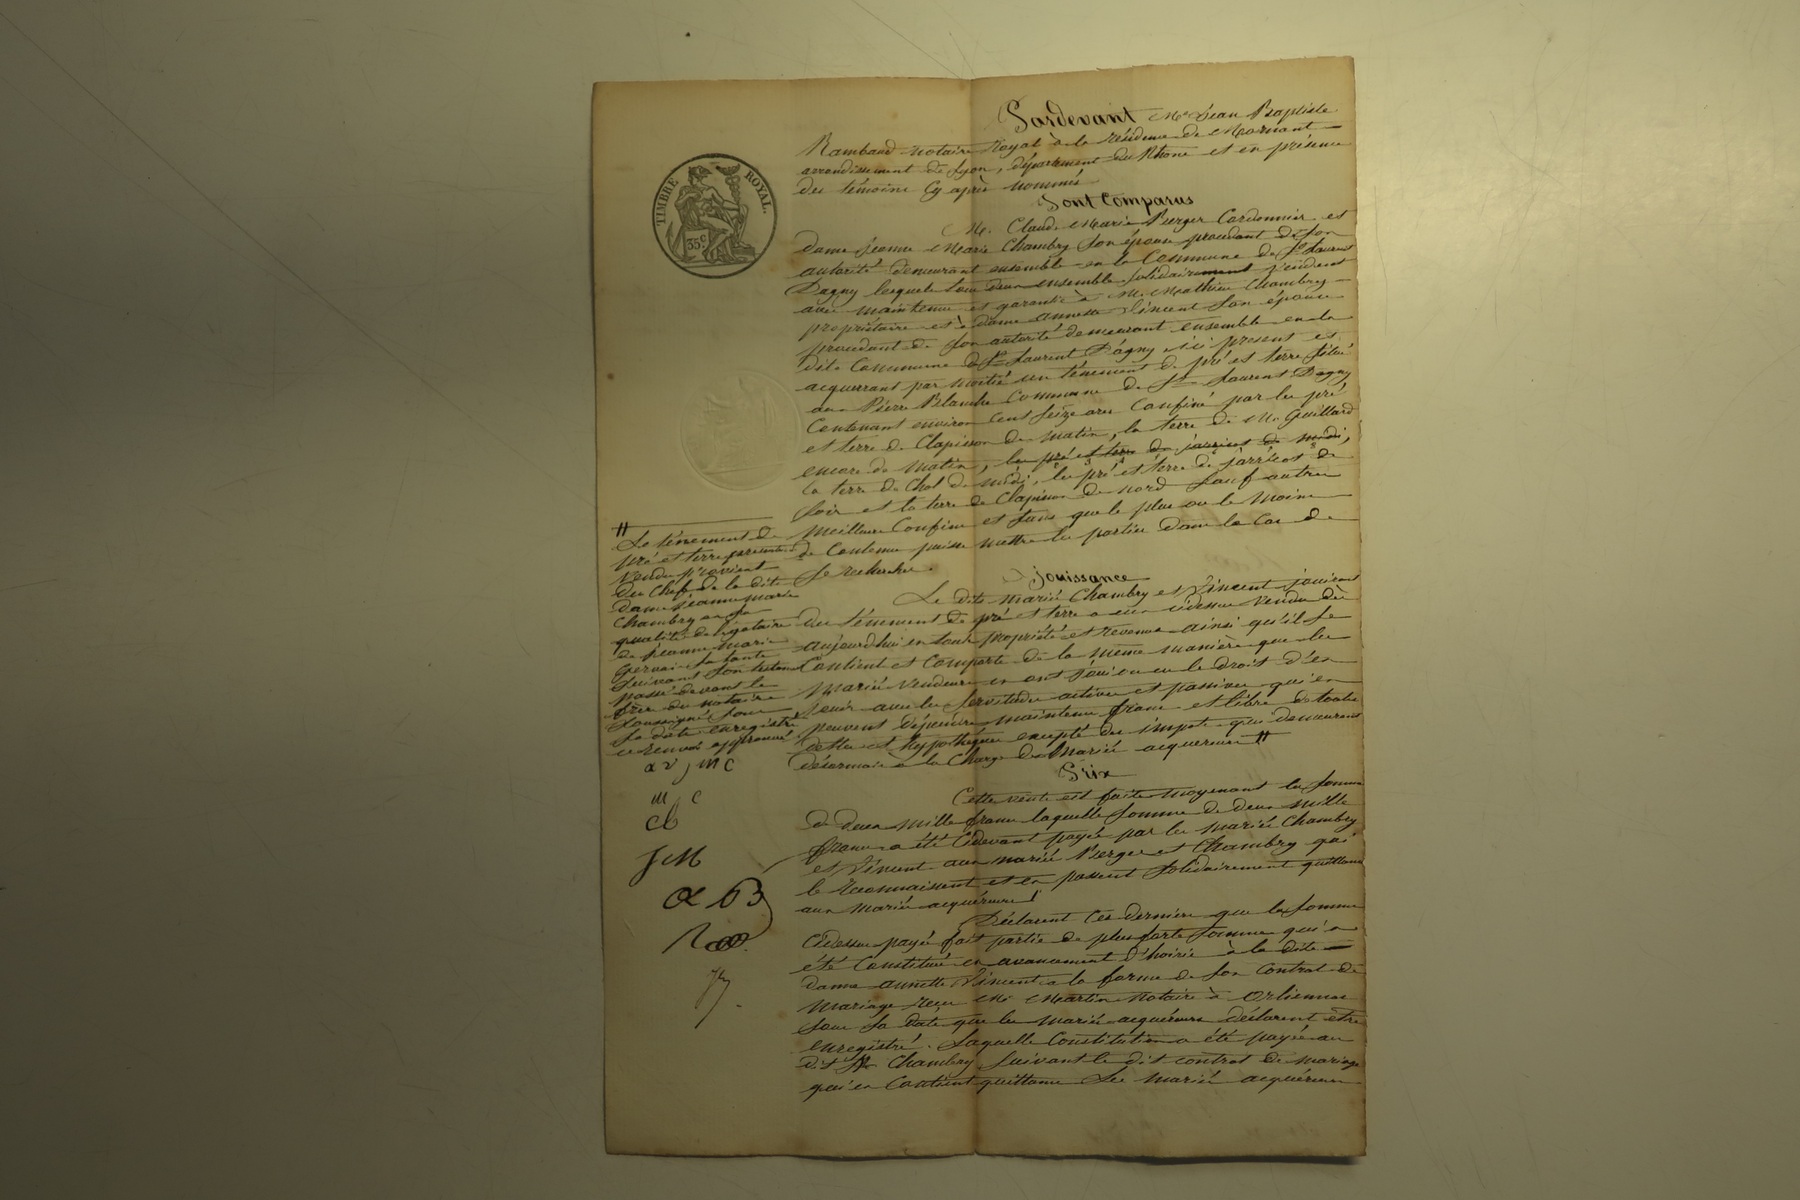 TIMBRE ROYAL.
35 c.
Pardevant Me Jean Baptiste
Rambaud notaire Royal à la résidence de Mornant
arrondissement de Lyon, département du Rhône et en présence
des témoins Cy après nommés
Sont Comparus
M. Claude Marie Berger Cordonnier et
dame jeanne Marie Chambry son épouse procédant de son
autorité demeurant ensemble en la Commune de St Laurent
Dagny lesquels tous deux ensemble solidairement vendent
avec maintenue et garantie à M. Mathieu Chambry
propriétaire et à dame annette Vincent son épouse
procédant de son autorité demeurant ensemble en la
dite Commune de St Laurent Dagny ici présent et
acquerrant par moitié un ténement de pré et terre situé
au Pierre Blanche Commune de St Laurent Dagny
Contenant environ cent seize ares Confiné par les pré
et terre de Clapisson de matin, la terre de M. Guillard
encore de matin, les pré et terre de jarricot de midi,
la terre de Chol de midi, les pré et terre de jarricot de
soir et la terre de Clapisson de nord sauf autres
meilleurs Confins et sans que le plus ou le moins
de Contenue puisse mettre les parties dans le Cas de
se rechercher.
jouissance
Les dits mariés Chambry et Vincent jouiront
du ténement de pré et terre a eux cidessus vendu dès
aujourdhui en toute propriété et revenus ainsi qu'il se
Contient et Comporte de la même manière que les
mariés vendeurs en ont joui ou eu le droit d'en
jouir avec les servitudes actives et passives qui en
peuvent dépendre maintenu franc et libre de toute
dettes et hypothèques excepté des impots qui demeurent
désormais à la Charge des mariés acquereurs #
Prix
Cette vente est faite moyenant la somme
de deux mille francs laquelle somme de deux mille
francs a été Cidevant payée par les mariés Chambry
et Vincent aux mariés Berger et Chambry qui
le reconnaissent et en passent solidairement quittance
aux mariés acquéreurs
Déclarent Ces derniers que la somme
Cidessus payée fait partie de plus forte somme qui a
été Constituée en avancement d'hoirie à la dite
dame annette Vincent a la forme de son contrat de
mariage reçu Me Martin notaire à Orliennas
sous sa date que les mariés acquéreurs déclarent être
enregistré. Laquelle Constitution a été payée au
dit Sr Chambry suivant le dit contrat de mariage
qui en Contient quittance Les mariés acquéreurs
# Le ténement de
pré et terre présentement
vendu provient
du Chef de la dite
Dame jeanne marie
Chambry en sa
qualité de légataire
de jeanne marie
Gervais sa tante
suivant son testament
passé devant le
frère du notaire
soussigné sous
sa date enregistré
ce renvoi approuvé
a v j m c
m c
cb
JCM
a B